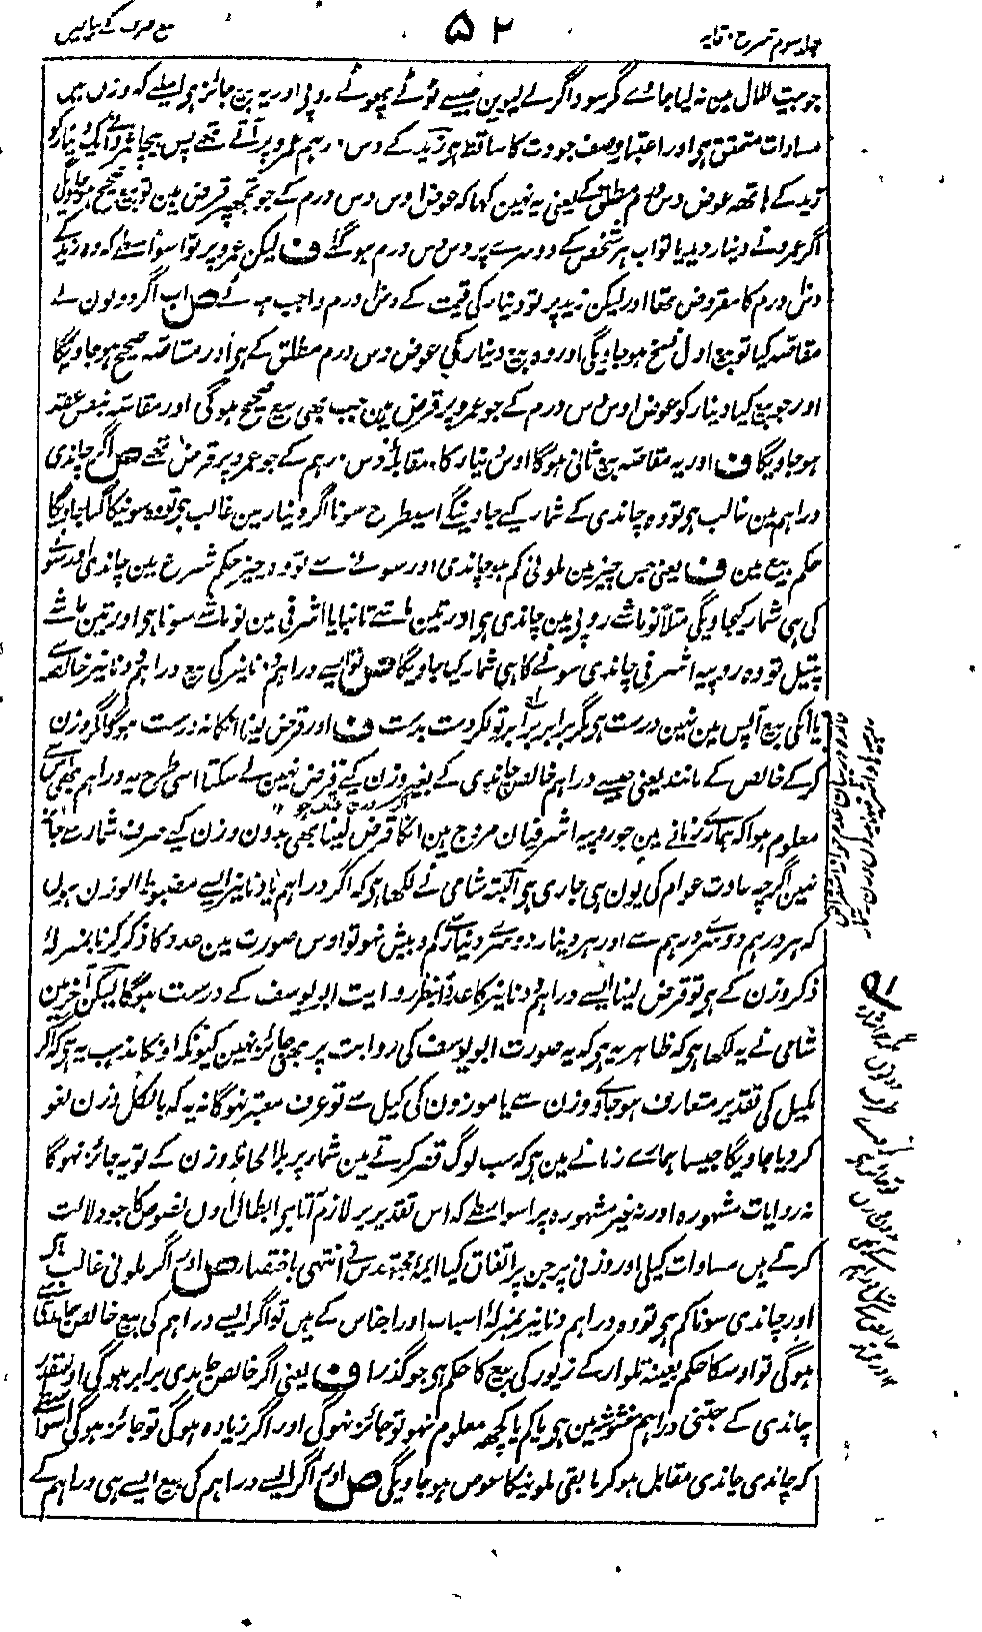 جلد سوم شرح وقایہ
۵۲
بیع صرف کے بیان میں
جو بیت المال مین نہ لیا جاے گر سوداگر لے لیوین جیسے ٹوٹے پھوٹے روپی اور یہ بیع جائز ہو اسلیے کہ وزن مین
مساوات متحقق ہو اور اعتبار وصف جودت کا ساقط ہو زید کے دس درہم عمرو پر آتے تھے پس بیچا عمرو نے ایک دینار کو
زید کے ہاتھ عوض دس درم مطلق کے یعنی یہ نہین کہا کہ عوض اوس دس درم کے جو تجھپر قرض مین تو بیع صحیح ہو جاویگی
اگر عمرو نے دینار دیدیا تو اب ہر شخص کے دوسرے پر دس دس درم ہو گئے ف لیکن عمرو پر تو اسواسطے کہ وہ زید کے
دس درم کا مقروض تھا اور لیکن زید پر تو دینار کی قیمت کے دس درم واجب ہوئے ص اب اگر دونون نے
مقاصہ کیا تو بیع اول فسخ ہو جاویگی اور وہ بیع دینار کی عوض دس درم مطلق کے ہو اور مقاصہ صحیح ہو جاویگا
اور جو بیع کیا دینار کو عوض اوس دس درم کے جو عمرو پر قرض مین جب بھی بیع صحیح ہو گی اور مقاصہ بنفس عقد
ہو جاویگا ف اور یہ مقاصہ بیع ثانی ہو گا اوس دینار کا بمقابلہ دس درہم کے جو عمرو پر قرض تھے ص اگر چاندی
دراہم مین غالب ہو تو وہ چاندی کے شمار کیے جاوینگے اسیطرح سونا اگر دینار مین غالب ہو تو وہ سونیکا گنا جاویگا
حکم بیع مین ف یعنی جس چیز مین ملونی کم ہو چاندی اور سونے سے تو وہ چیز حکم شرع مین چاندی اور سونے
کی ہی شمار کیجاویگی مثلاً نو ماشے روپی مین چاندی ہو اور تین ماشے تانبا یا اشرفی مین نو ماشے سونا ہو اور تین ماشے
پیتل تو وہ روپیہ اشرفی چاندی سونے کا ہی شمار کیا جاویگا ص تو ایسے دراہم و دنانیر کی بیع دراہم و دنانیر خالصہ سے
یا انکی بیع آپس مین نہین درست ہو مگر برابر برابر تول کر دست بدست ف اور قرض لینا انکا نہ درست ہو گا مگر وزن
کرکے خالص کے مانند یعنی جیسے دراہم خالص چاندی کے بغیر وزن کیے قرض نہین لے سکتا اسی طرح یہ دراہم بھی اس سے
معلوم ہوا کہ ہمارے زمانے مین جو روپیہ اشرفیان مروج مین انکا قرض لینا بھی بدون وزن کیے صرف شمار سے جائز
نہین اگرچہ عادت عوام کی یون ہی جاری ہو البتہ شامی نے لکھا ہو کہ اگر دراہم یا دنانیر ایسے مضبوط الوزن ہون
کہ ہر درہم دوسرے درہم سے اور ہر دینار دوسرے دینار سے کم و بیش نہو تو اوس صورت مین عدد کا ذکر کرنا بمنزلہ
ذکر وزن کے ہو تو قرض لینا ایسے دراہم و دنانیر کا عدداً بنظر روایت ابو یوسف کے درست ہو گا لیکن آخر مین
شامی نے یہ لکھا ہو کہ ظاہر یہ ہو کہ یہ صورت ابو یوسف کی روایت پر بھی جائز نہین کیونکہ اونکا مذہب یہ ہو کہ اگر
مکیل کی تقدیر متعارف ہو جاے وزن سے یا موزون کی کیل سے تو عرف معتبر ہو گا نہ یہ کہ بالکل وزن لغو
کر دیا جاویگا جیسا ہمارے زمانے مین ہو کہ سب لوگ قصر کرتے مین شمار پر بلا لحاظ وزن کے تو یہ جائز نہو گا
نہ روایات مشہورہ اور نہ غیر مشہورہ پر اسواسطے کہ اس تقدیر پر لازم آتا ہو ابطال اون نصوص کا جو دلالت
کرتے ہیں مساوات کیلی اور وزنی پر جن پر اتفاق کیا ایمہ مجتہدین نے انتہی باختصار ص اور اگر ملونی غالب ہو
اور چاندی سونا کم ہو تو وہ دراہم و دنانیر بمنزلہ اسباب اور اجناس کے ہیں تو اگر ایسے دراہم کی بیع خالص چاندی سے
ہو گی تو اوسکا حکم بعینہ تلوار کے زیور کی بیع کا حکم ہو جو گذرا ف یعنی اگر خالص چاندی برابر ہو گی اوسقدر
چاندی کے جتنی دراہم مغشوشہ مین ہو یا کم یا کچھ معلوم نہو تو جائز نہو گی اور اگر زیادہ ہو گی تو جائز ہو گی اسواسطے
کہ چاندی چاندی مقابل ہو کر باقی ملونیکا عوض ہو جاویگی ص اور اگر ایسے دراہم کی بیع ایسے ہی دراہم کے